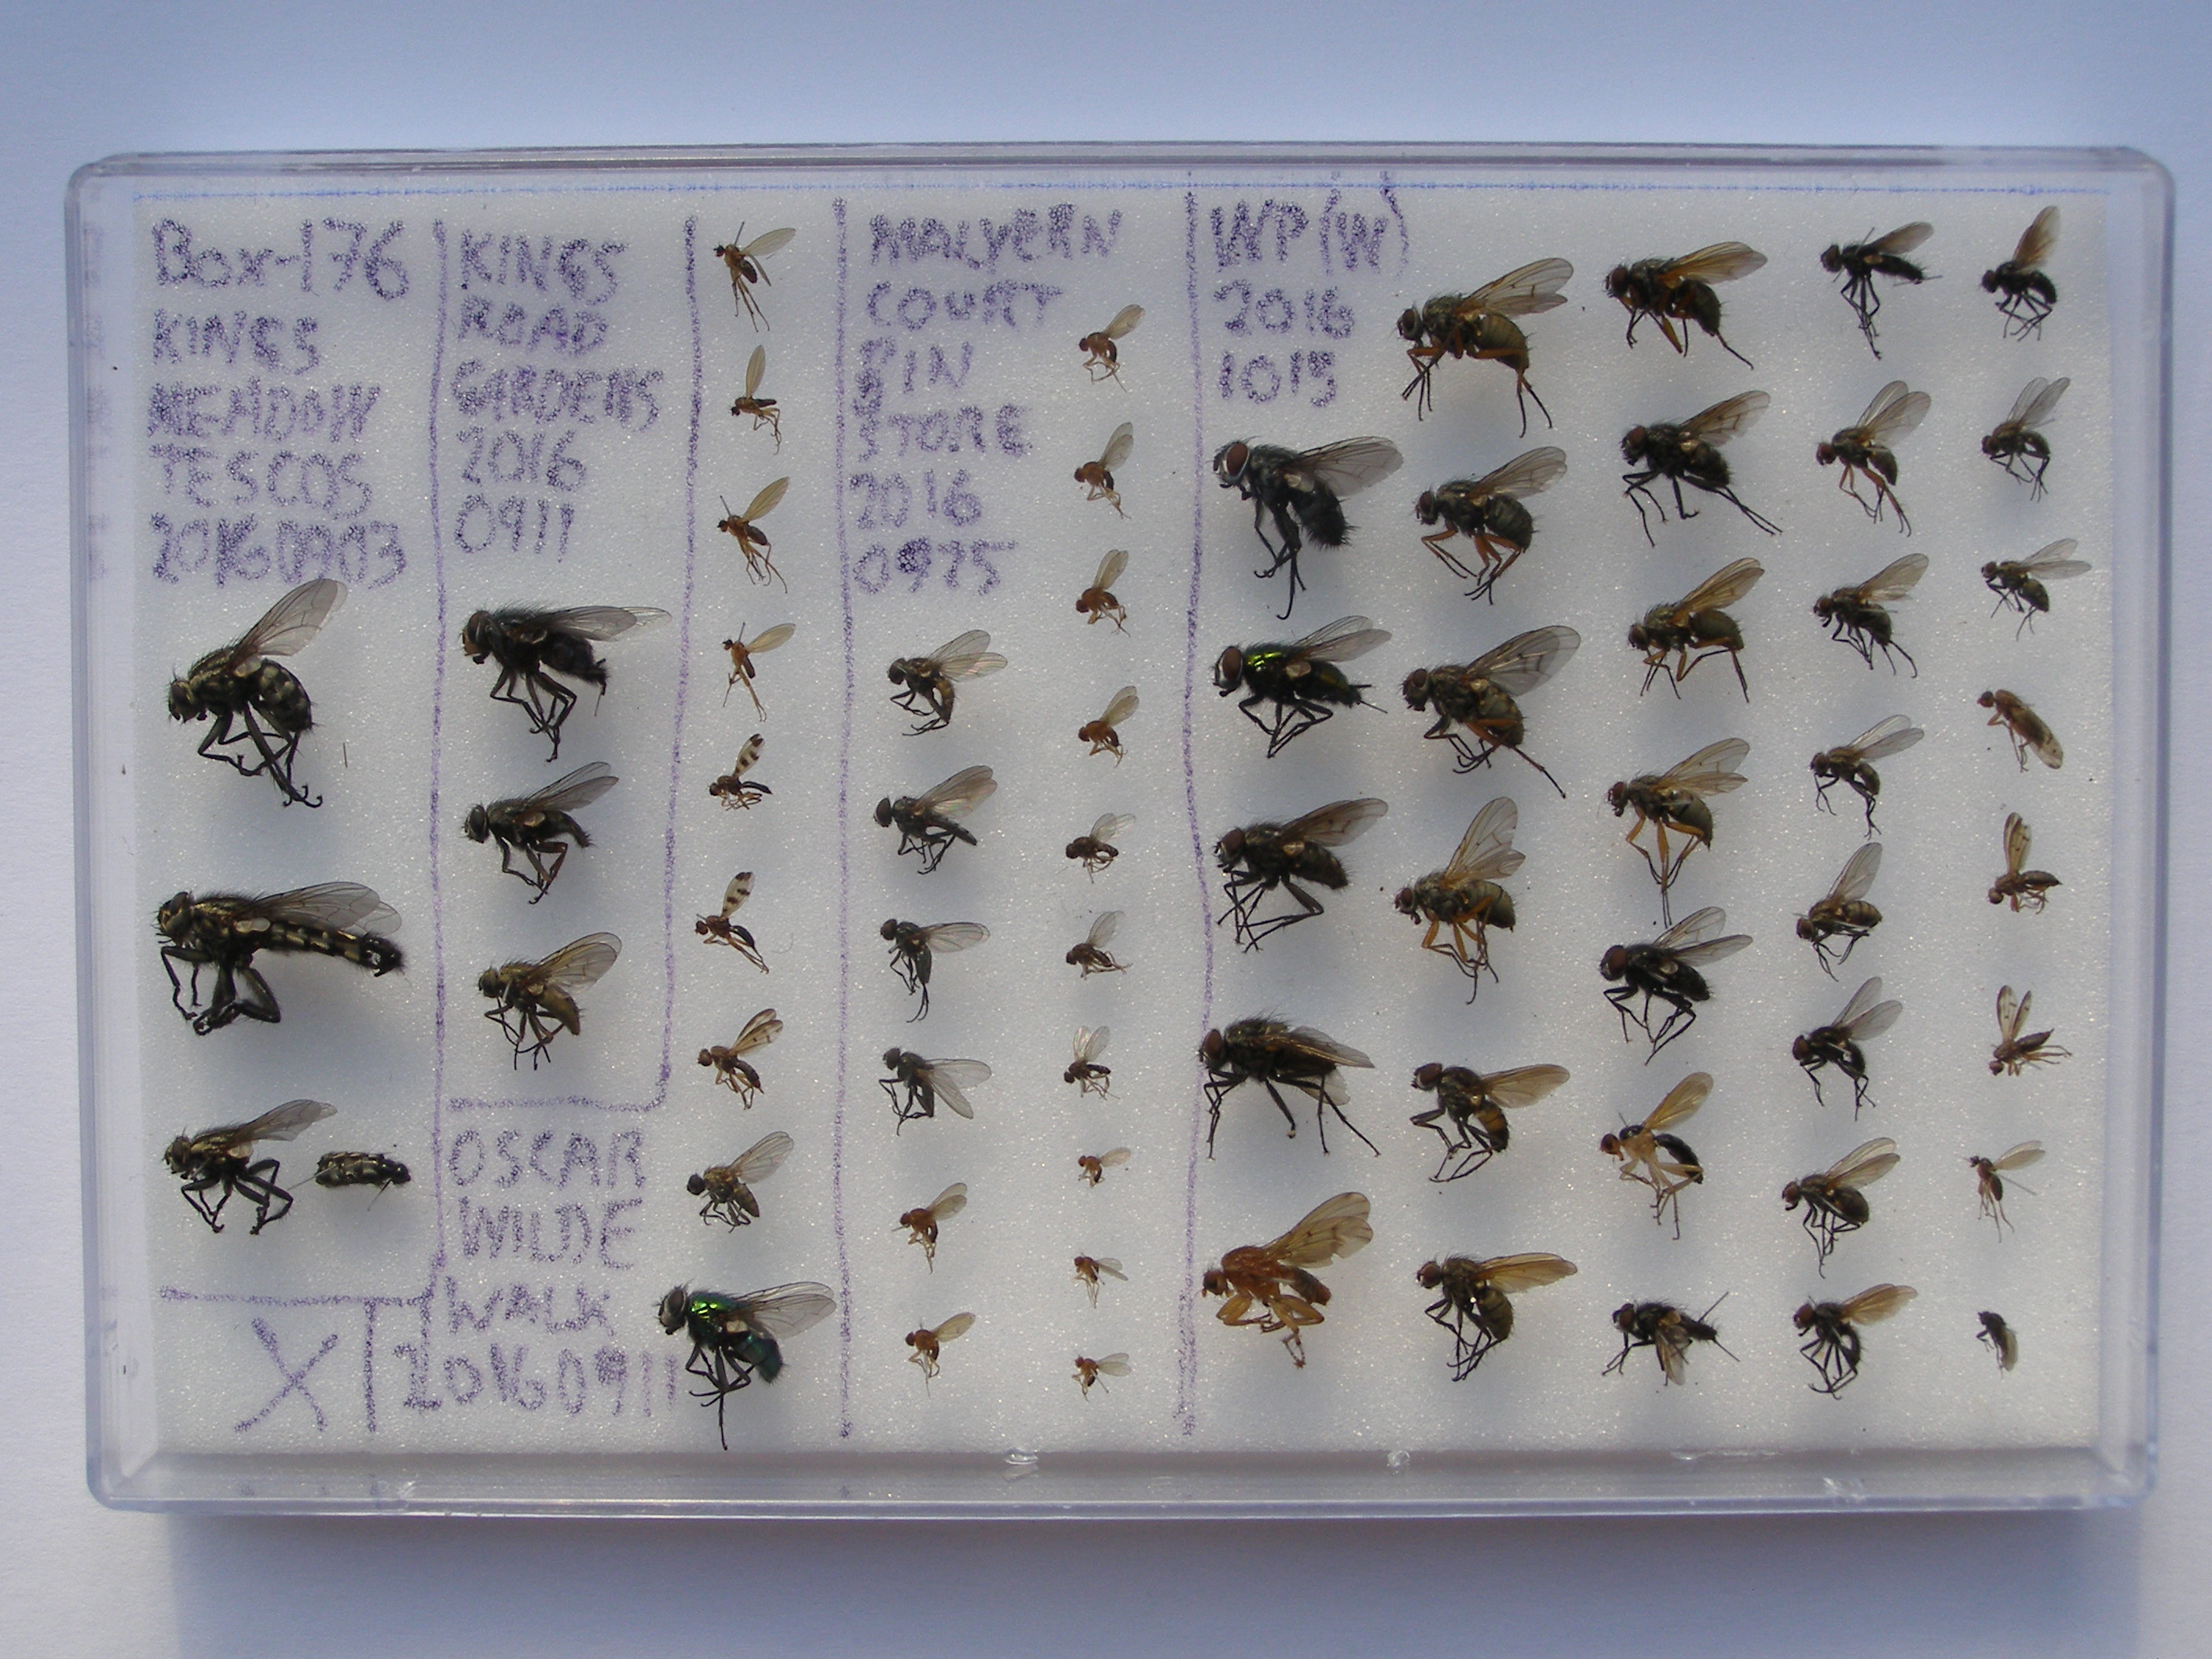 Box-176
KINGS
MEADOW
TESCOS
20160903
KINGS
ROAD
GARDENS
2016
0911
OSCAR
WILDE
WALK
20160911
MALVERN
COURT
BIN
STORE
2016
0925
WP(W)
2016
1015